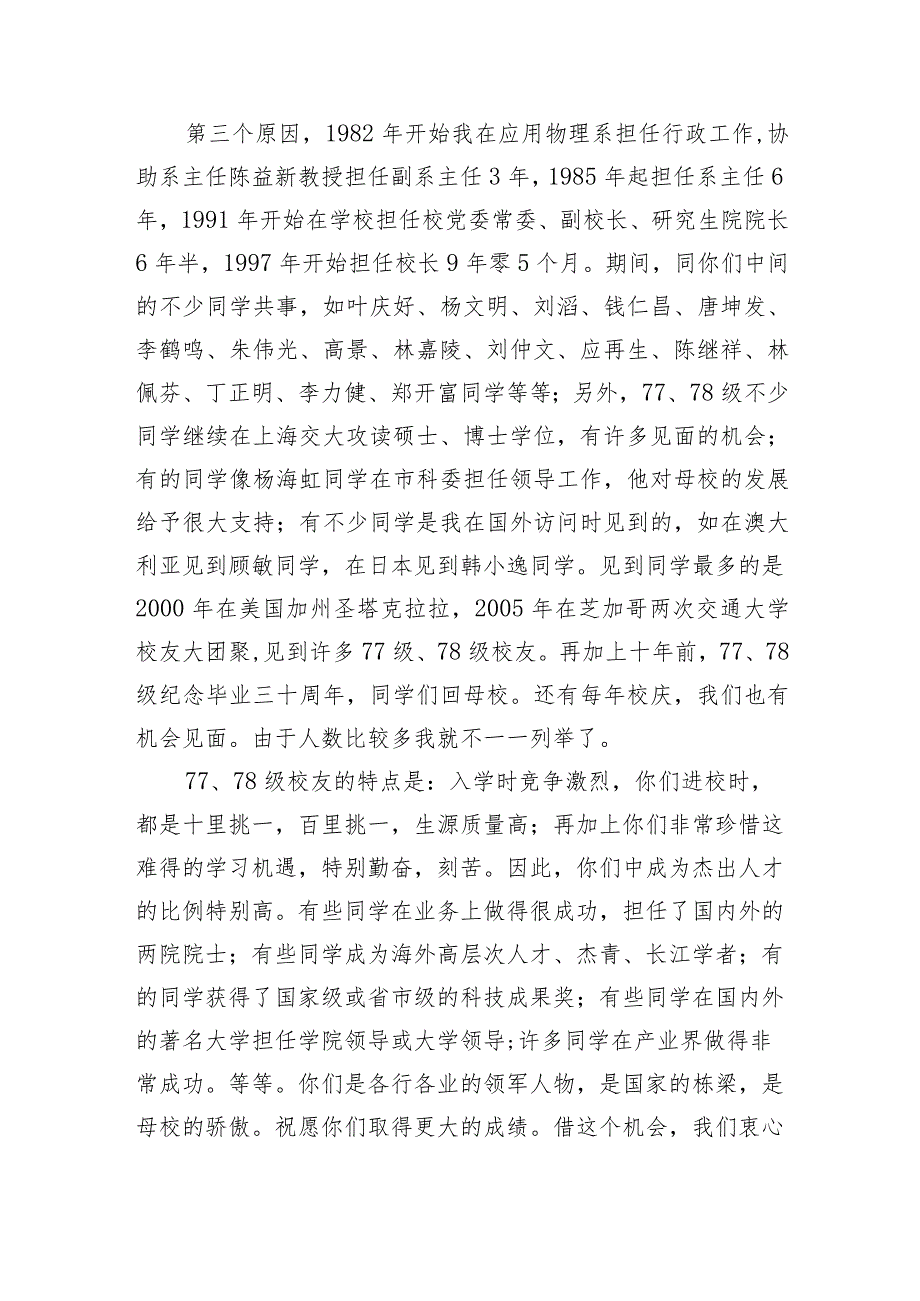 第三个原因，1982年开始我在应用物理系担任行政工作,协
助系主任陈益新教授担任副系主任3年，1985年起担任系主任6
年，1991年开始在学校担任校党委常委、副校长、研究生院院长
6年半，1997年开始担任校长9年零5个月。期间，同你们中间
的不少同学共事，如叶庆好、杨文明、刘滔、钱仁昌、唐坤发、
李鹤鸣、朱伟光、高景、林嘉陵、刘仲文、应再生、陈继祥、林
佩芬、丁正明、李力健、郑开富同学等等；另外，77、78级不少
同学继续在上海交大攻读硕士、博士学位，有许多见面的机会；
有的同学像杨海虹同学在市科委担任领导工作，他对母校的发展
给予很大支持；有不少同学是我在国外访问时见到的，如在澳大
利亚见到顾敏同学，在日本见到韩小逸同学。见到同学最多的是
2000年在美国加州圣塔克拉拉，2005年在芝加哥两次交通大学
校友大团聚,见到许多77级、78级校友。再加上十年前，77、78
级纪念毕业三十周年，同学们回母校。还有每年校庆，我们也有
机会见面。由于人数比较多我就不一一列举了。
77、78级校友的特点是：入学时竞争激烈，你们进校时，
都是十里挑一，百里挑一，生源质量高；再加上你们非常珍惜这
难得的学习机遇，特别勤奋，刻苦。因此，你们中成为杰出人才
的比例特别高。有些同学在业务上做得很成功，担任了国内外的
两院院士；有些同学成为海外高层次人才、杰青、长江学者；有
的同学获得了国家级或省市级的科技成果奖；有些同学在国内外
的著名大学担任学院领导或大学领导;许多同学在产业界做得非
常成功。等等。你们是各行各业的领军人物，是国家的栋梁，是
母校的骄傲。祝愿你们取得更大的成绩。借这个机会，我们衷心